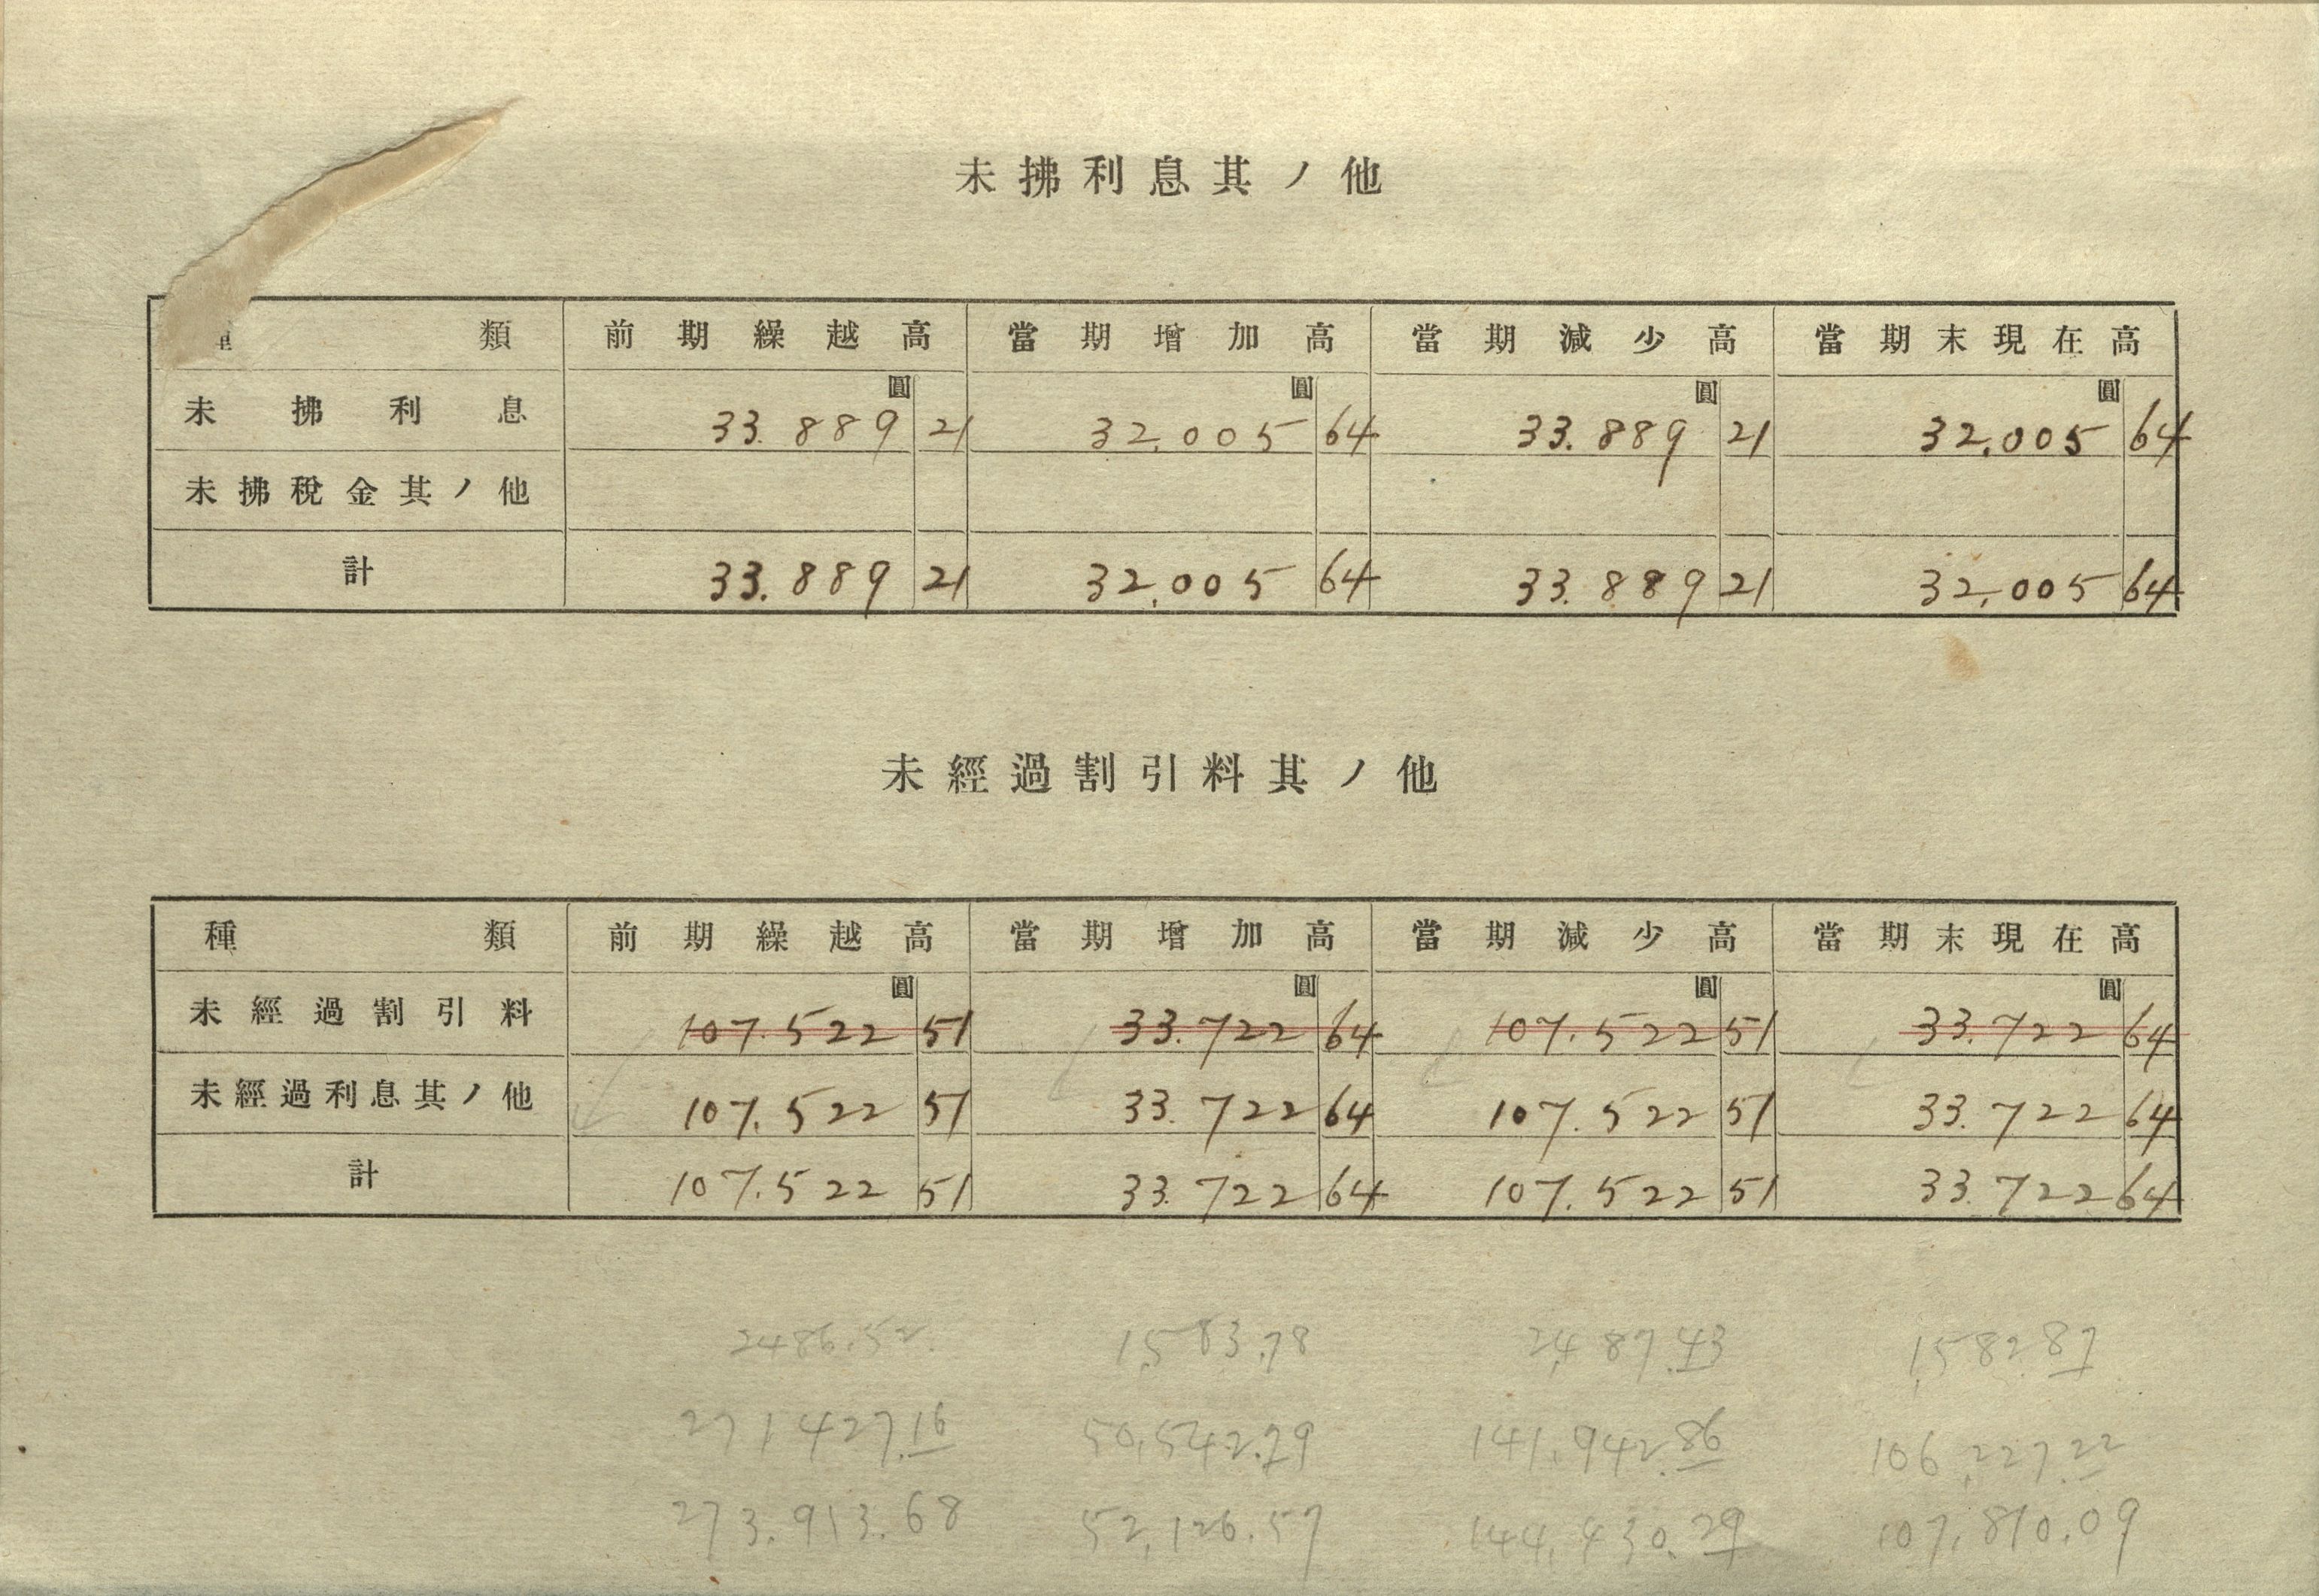 未拂利息其ノ他
種類 前期繰越高 當期增加高 當期減少高 當期末現在高
圓 圓 圓 圓
未拂利息 33.889 21 32,005 64 33.889 21 32,005 64
未拂稅金其ノ他
計 33.889 21 32,005 64 33.889 21 32,005 64
未經過割引料其ノ他
種類 前期繰越高 當期增加高 當期減少高 當期末現在高
圓 圓 圓 圓
未經過割引料 107.522 51 33.722 64 107.522 51 33.722 64
未經過利息其ノ他 107.522 51 33.722 64 107.522 51 33.722 64
計 107.522 51 33.722 64 107.522 51 33.722 64
2486.52 1,583.78 2,487.43 1,582.87
271427.16 50,542.79 141,942.86 106,227.22
273.913.68 52,126.57 144,430.29 107,810.09